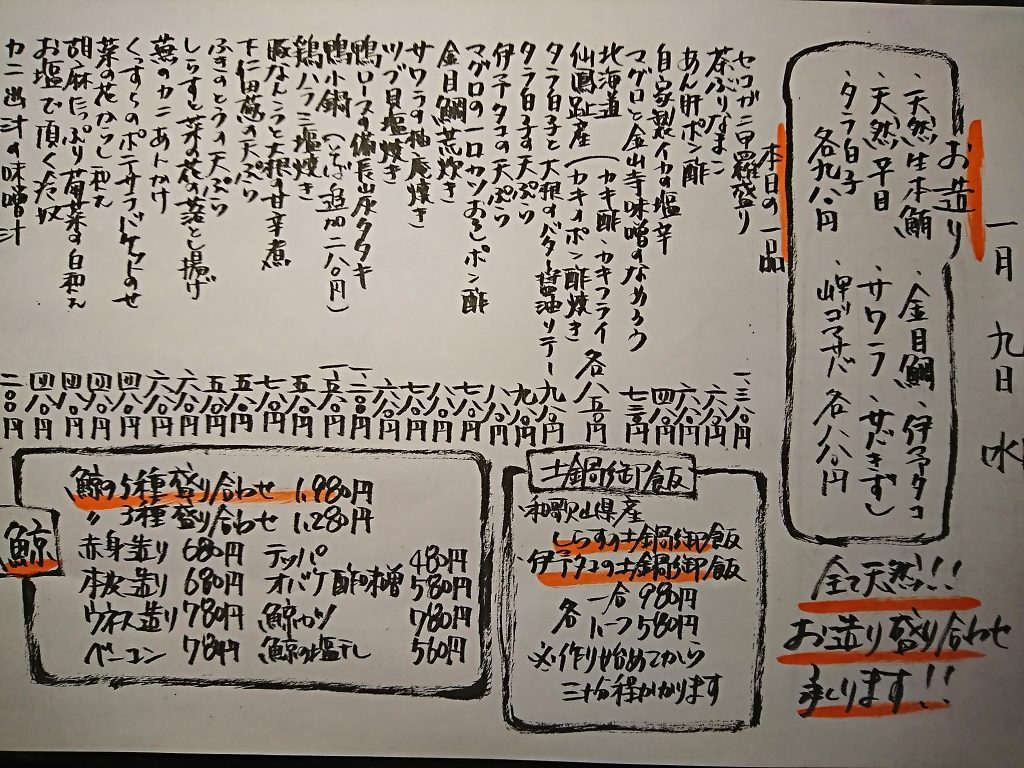 一月九日 水
お造り
・天然生本鮪 ・金目鯛 ・伊予タコ
・天然平目 ・サワラ ・サバきずし
・タラ白子 ・岬ゴマサバ
各九八〇円 各八八〇円
全て天然!!
お造り盛り合わせ
承ります!!
本日の一品
セコガニ甲羅盛り 一、三八〇円
茶ぶりなまこ 六八〇円
あん肝ポン酢 六八〇円
自家製イカの塩辛 四八〇円
マグロと金山寺味噌のなめろう 七三〇円
北海道
仙鳳趾産(カキ酢・カキフライ
(カキポン酢焼き 各八五〇円
タラ白子と大根のバター醤油ソテー 九八〇円
タラ白子の天ぷら 九八〇円
伊予タコの天ぷら 八八〇円
マグロの一口カツおろしポン酢 七八〇円
金目鯛荒炊き 八八〇円
サワラの柚庵焼き 七八〇円
ツブ貝塩焼き 六八〇円
鴨ロースの備長炭タタキ 一、二八〇円
鴨小鍋(そば追加二八〇円) 一、五八〇円
鶏ハラミ塩焼き 五八〇円
豚なんこつと大根の甘辛煮 七八〇円
下仁田葱の天ぷら 五八〇円
ふきのとうの天ぷら 五八〇円
しらすと菜の花の落とし揚げ 六八〇円
蕪のカニあんかけ 六八〇円
くつすらのポテサラバケットのせ 四八〇円
菜の花からし和え 四八〇円
胡麻たっぷり菊菜の白和え 四八〇円
お塩で頂く冷奴 四八〇円
カニ出汁の味噌汁 二八〇円
土鍋御飯
・和歌山県産
しらすの土鍋御飯
伊予タコの土鍋御飯
各 一合 980円
ハーフ 580円
※作り始めてから
三十分程かかります
鯨
鯨の5種盛り合わせ 1,980円
〃 3種盛り合わせ 1,280円
赤身造り 680円 テッパ 480円
本皮造り 680円 オバケ酢味噌 580円
ウネス造り 780円 鯨カツ 780円
ベーコン 780円 鯨の塩干し 560円